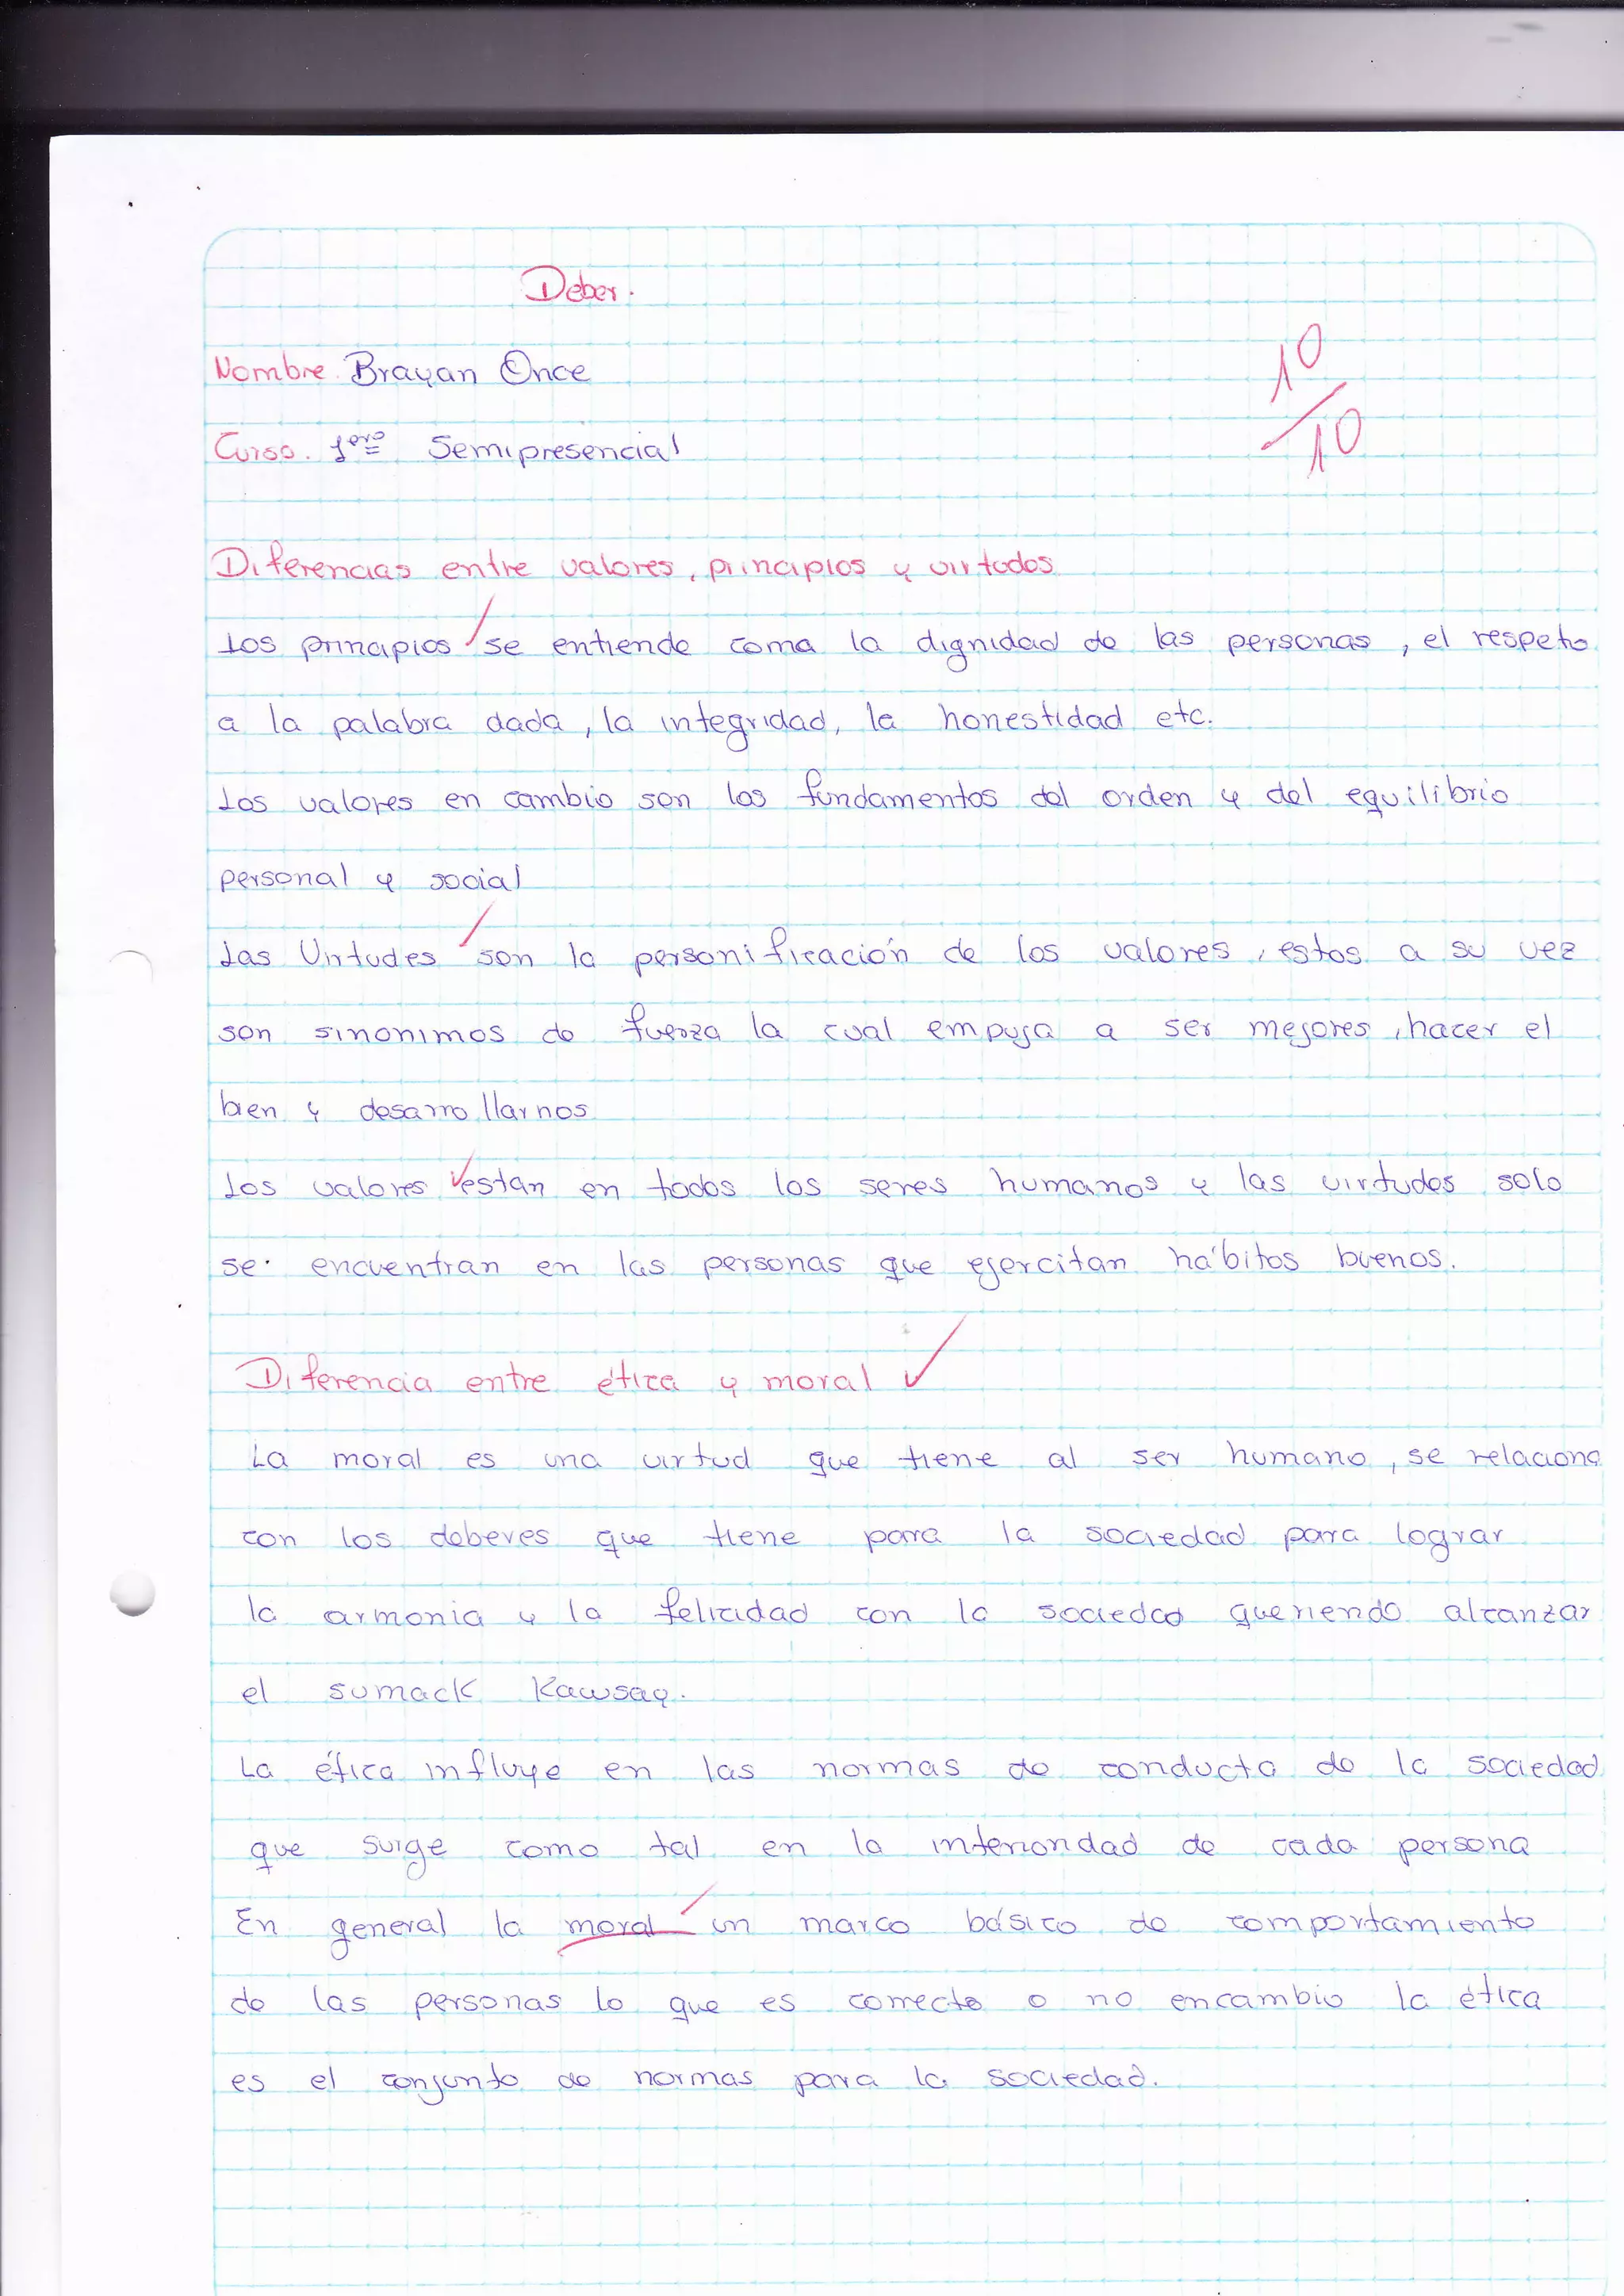 Deber.
Nombre. Brayan Once
10
Curso. 1ero Semipresencial
10
Diferencias entre valores, principios y virtudes
Los principios se entiende coma la dignidad de las personas, el respeto
a la palabra dada, la integridad, la honestidad etc.
Los valores en cambio son los fundamentos del orden y del equilibrio
personal y social
Las Virtudes son la personificación de los valores, estos a su vez
son sinonimos de fuerza la cual empuja a ser mejores, hacer el
bien y desarrollarnos
Los valores estan en todos los seres humanos y las virtudes solo
se encuentran en las personas que ejercitan hábitos buenos.
Diferencia entre ética y moral
La moral es una virtud que tiene al ser humano, se relaciona
con los deberes que tiene para la sociedad para lograr
la armonia y la felicidad con la sociedad queriendo alcanzar
el sumack Kawsay.
La ética influye en las normas de conducta de la sociedad
que surge como tal en la interioridad de cada persona
En general la moral un marco básico de comportamiento
de las personas lo que es correcto o no encambio la ética
es el conjunto de normas para la sociedad.